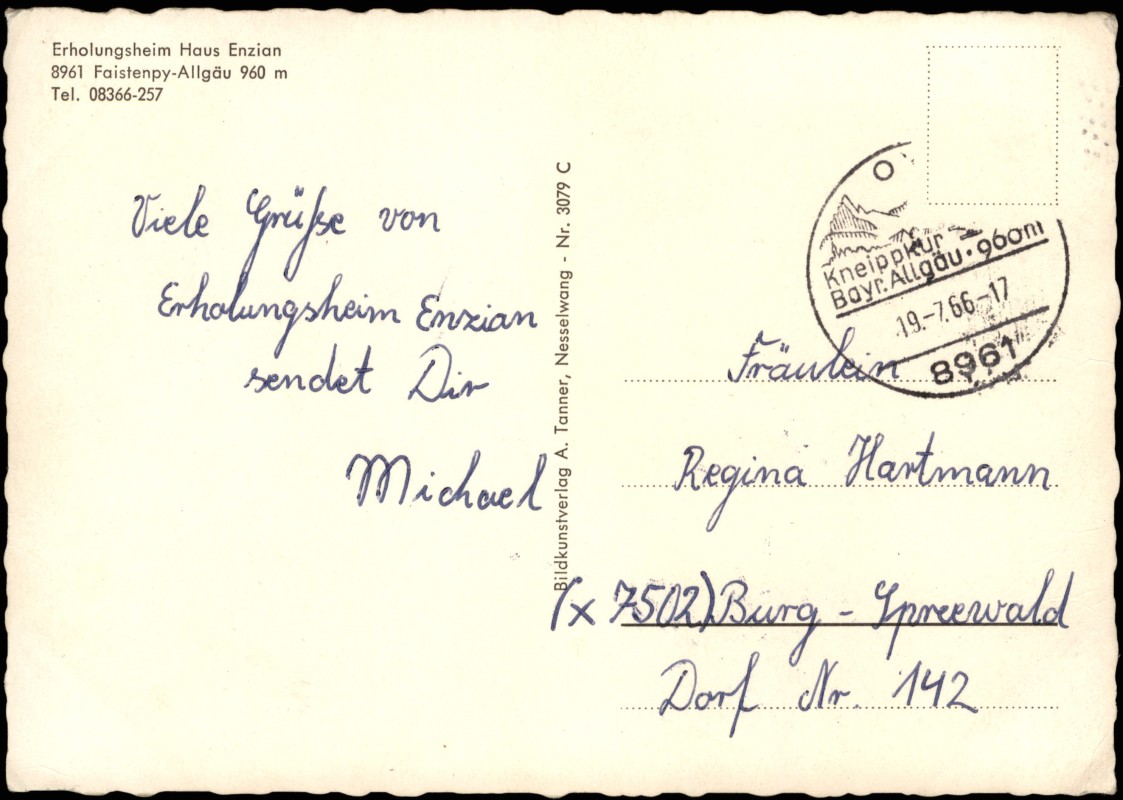 Erholungsheim Haus Enzian
8961 Faistenpy-Allgäu 960 m
Tel. 08366-257
Viele Grüße von
Erholungsheim Enzian
sendet Dir
Michael
Bildkunstverlag A. Tanner, Nesselwang - Nr. 3079 C
O
Kneippkur
Bayr. Allgäu · 960m
19.-7.66-17
8961
Fräulein
Regina Hartmann
(x 7502) Burg - Spreewald
Dorf Nr. 142